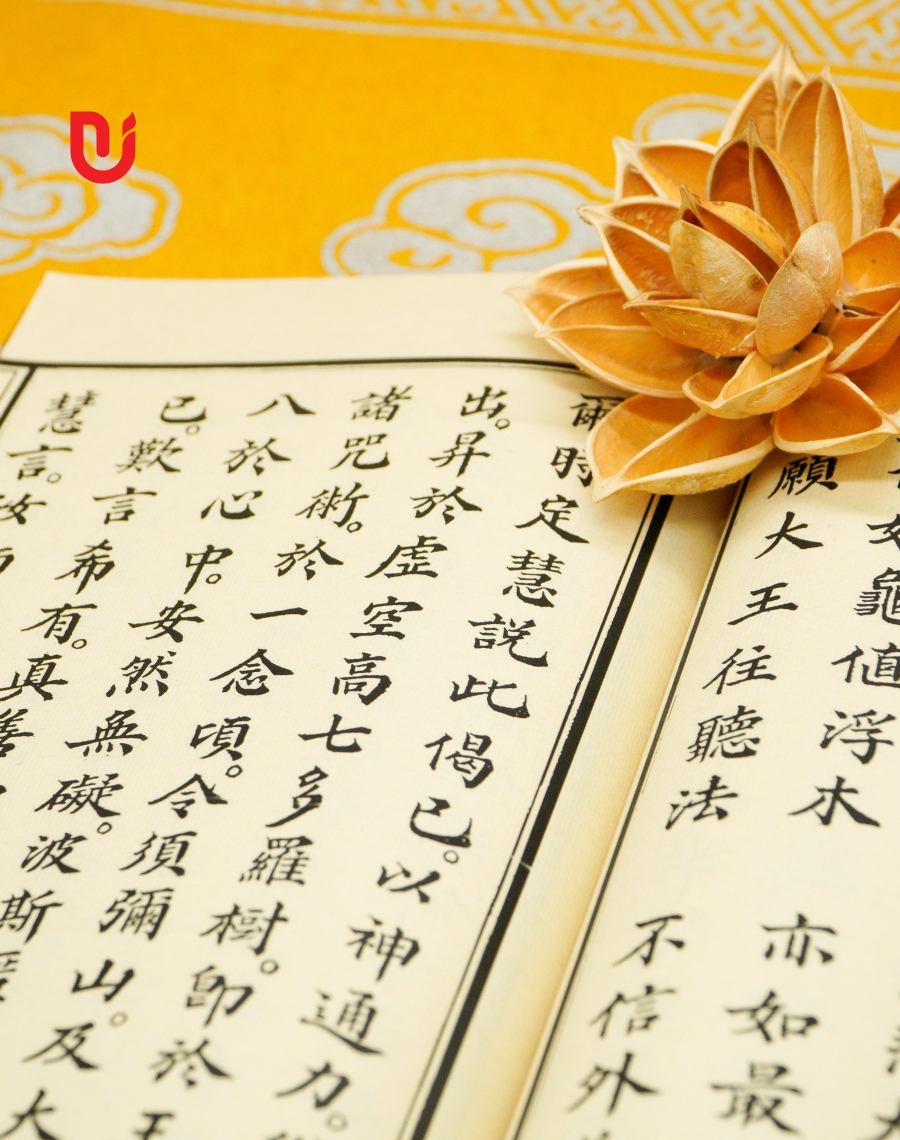 如龜值浮木　亦如最
願大王往聽法　不信外
爾時定慧說此偈已。以神通力。
出。昇於虛空高七多羅樹。即於王
諸咒術。於一念頃。令須彌山。及大
八於心中。安然無礙。波斯
已。歎言希有。真善
慧言。汝